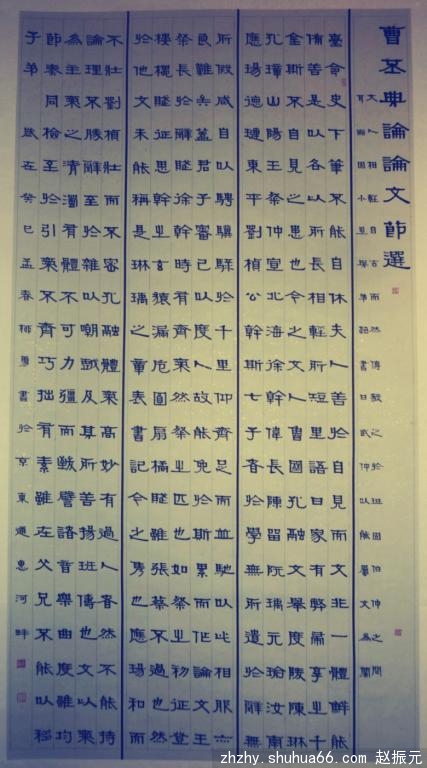 曹丕典論論文節選
文人相輕自古而然傅毅之於班固伯仲之間
耳而固小之與弟超書曰武仲以能屬文為蘭
臺令史下筆不能自休夫人善於自見而文非一體鮮能
備善是以各以所長相輕所短里語曰家有弊帚享之千
金斯不自見之患也今之文人魯國孔融文舉廣陵陳琳
孔璋山陽王粲仲宣北海徐幹偉長陳留阮瑀元瑜汝南
應瑒德璉東平劉楨公幹斯七子者於學無所遺於辭無
所假咸自以騁驥騄於千里仰齊足而並馳以此相服
良難矣蓋君子審己以度人故能免於斯累而作論文王
粲長於辭賦徐幹時有齊氣然粲之匹也如粲之初征登
樓槐賦征思幹之玄猿漏卮圓扇橘賦雖張蔡不過也然
於他文未能稱是琳瑀之章表書記今之雋也應瑒和而
不壯劉楨壯而不密孔融體氣高妙有過人者然不能持
論理不勝辭至於雜以嘲戲及其所善揚班儔也文以氣
為主氣之清濁有體不可力彊而致譬諸音樂曲度雖均
節奏同檢至於引氣不齊巧拙有素雖在父兄不能以移
子弟 歲在癸巳孟春 書於京東通惠河畔
zhzhy.shuhua66.com 赵振元